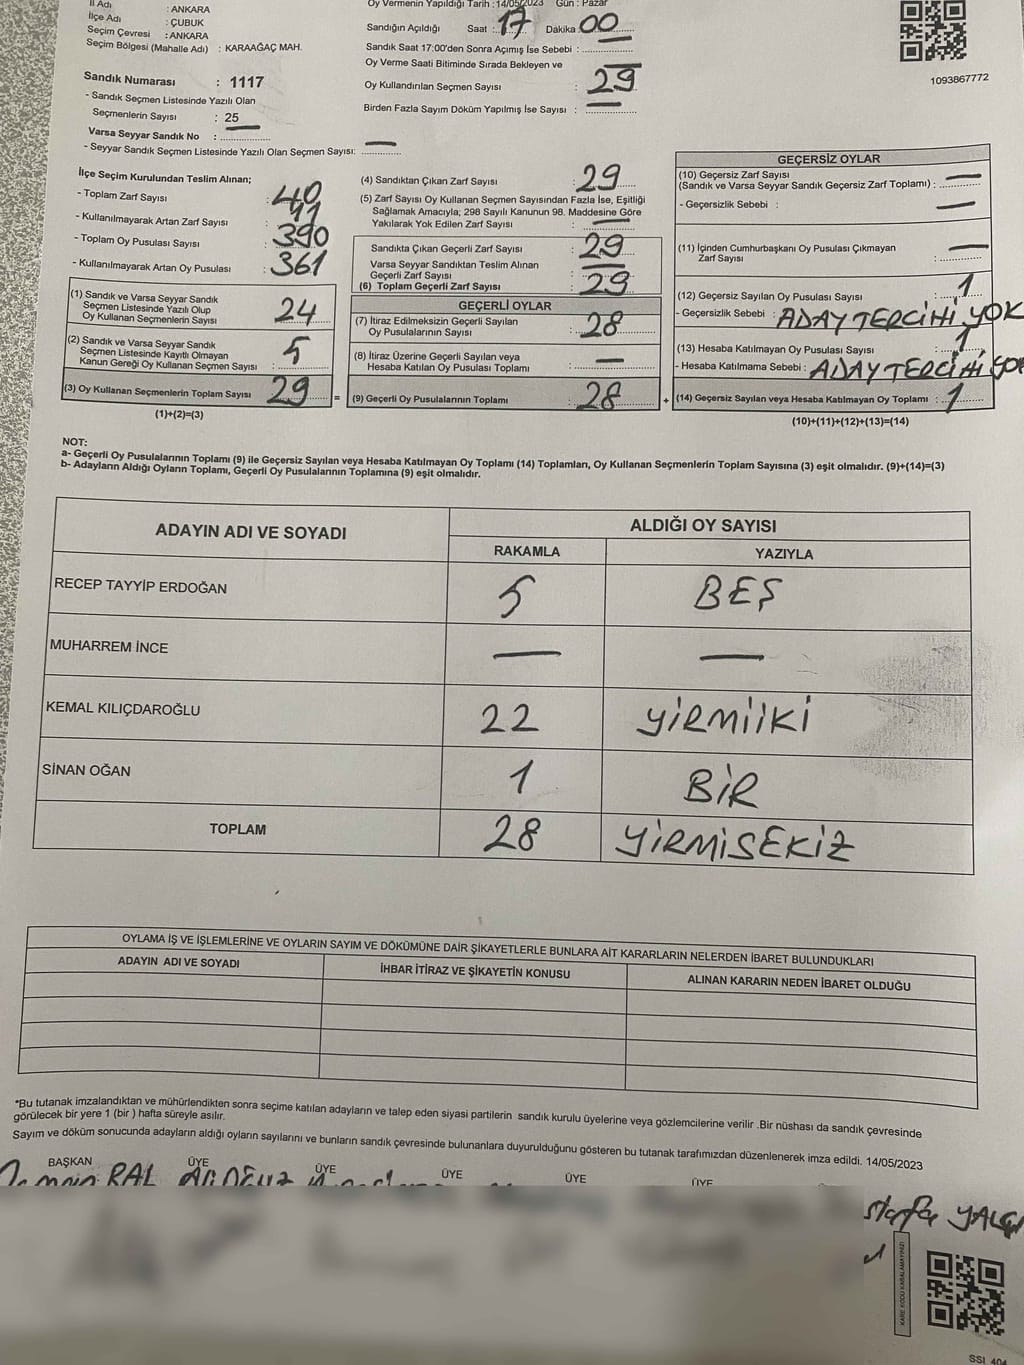 İl Adı : ANKARA
İlçe Adı : ÇUBUK
Seçim Çevresi : ANKARA
Seçim Bölgesi (Mahalle Adı) : KARAAĞAÇ MAH.
Sandık Numarası : 1117
- Sandık Seçmen Listesinde Yazılı Olan
Seçmenlerin Sayısı : 25
Varsa Seyyar Sandık No : —
- Seyyar Sandık Seçmen Listesinde Yazılı Olan Seçmen Sayısı: —
Oy Vermenin Yapıldığı Tarih : 14/05/2023 Gün : Pazar
Sandığın Açıldığı Saat : 17 Dakika : 00
Sandık Saat 17:00'den Sonra Açımış İse Sebebi : —
Oy Verme Saati Bitiminde Sırada Bekleyen ve
Oy Kullandırılan Seçmen Sayısı : 29
Birden Fazla Sayım Döküm Yapılmış İse Sayısı : —
1093867772
İlçe Seçim Kurulundan Teslim Alınan;
- Toplam Zarf Sayısı : 40
- Kullanılmayarak Artan Zarf Sayısı : 11
- Toplam Oy Pusulası Sayısı : 390
- Kullanılmayarak Artan Oy Pusulası : 361
(1) Sandık ve Varsa Seyyar Sandık
Seçmen Listesinde Yazılı Olup
Oy Kullanan Seçmenlerin Sayısı : 24
(2) Sandık ve Varsa Seyyar Sandık
Seçmen Listesinde Kayıtlı Olmayan
Kanun Gereği Oy Kullanan Seçmen Sayısı : 5
(3) Oy Kullanan Seçmenlerin Toplam Sayısı : 29
(1)+(2)=(3)
=
(4) Sandıktan Çıkan Zarf Sayısı : 29
(5) Zarf Sayısı Oy Kullanan Seçmen Sayısından Fazla İse, Eşitliği
Sağlamak Amacıyla; 298 Sayılı Kanunun 98. Maddesine Göre
Yakılarak Yok Edilen Zarf Sayısı : —
Sandıkta Çıkan Geçerli Zarf Sayısı : 29
Varsa Seyyar Sandıktan Teslim Alınan
Geçerli Zarf Sayısı : —
(6) Toplam Geçerli Zarf Sayısı : 29
GEÇERLİ OYLAR
(7) İtiraz Edilmeksizin Geçerli Sayılan
Oy Pusulalarının Sayısı : 28
(8) İtiraz Üzerine Geçerli Sayılan veya
Hesaba Katılan Oy Pusulası Toplamı : —
(9) Geçerli Oy Pusulalarının Toplamı : 28
+
GEÇERSİZ OYLAR
(10) Geçersiz Zarf Sayısı
(Sandık ve Varsa Seyyar Sandık Geçersiz Zarf Toplamı) : —
- Geçersizlik Sebebi : —
(11) İçinden Cumhurbaşkanı Oy Pusulası Çıkmayan
Zarf Sayısı : —
(12) Geçersiz Sayılan Oy Pusulası Sayısı : 1
- Geçersizlik Sebebi : ADAY TERCİHİ YOK
(13) Hesaba Katılmayan Oy Pusulası Sayısı : 1
- Hesaba Katılmama Sebebi : ADAY TERCİHİ YOK
(14) Geçersiz Sayılan veya Hesaba Katılmayan Oy Toplamı : 1
(10)+(11)+(12)+(13)=(14)
NOT:
a- Geçerli Oy Pusulalarının Toplamı (9) ile Geçersiz Sayılan veya Hesaba Katılmayan Oy Toplamı (14) Toplamları, Oy Kullanan Seçmenlerin Toplam Sayısına (3) eşit olmalıdır. (9)+(14)=(3)
b- Adayların Aldığı Oyların Toplamı, Geçerli Oy Pusulalarının Toplamına (9) eşit olmalıdır.
ADAYIN ADI VE SOYADI ALDIĞI OY SAYISI
RAKAMLA YAZIYLA
RECEP TAYYİP ERDOĞAN 5 BEŞ
MUHARREM İNCE — —
KEMAL KILIÇDAROĞLU 22 YİRMİİKİ
SİNAN OĞAN 1 BİR
TOPLAM 28 YİRMİSEKİZ
OYLAMA İŞ VE İŞLEMLERİNE VE OYLARIN SAYIM VE DÖKÜMÜNE DAİR ŞİKAYETLERLE BUNLARA AİT KARARLARIN NELERDEN İBARET BULUNDUKLARI
ADAYIN ADI VE SOYADI İHBAR İTİRAZ VE ŞİKAYETİN KONUSU ALINAN KARARIN NEDEN İBARET OLDUĞU
*Bu tutanak imzalandıktan ve mühürlendikten sonra seçime katılan adayların ve talep eden siyasi partilerin sandık kurulu üyelerine veya gözlemcilerine verilir .Bir nüshası da sandık çevresinde
görülecek bir yere 1 (bir ) hafta süreyle asılır.
Sayım ve döküm sonucunda adayların aldığı oyların sayılarını ve bunların sandık çevresinde bulunanlara duyurulduğunu gösteren bu tutanak tarafımızdan düzenlenerek imza edildi. 14/05/2023
BAŞKAN ÜYE ÜYE ÜYE ÜYE ÜYE
RAL
KARE KODU KARALAMAYINIZ!
SSI 404